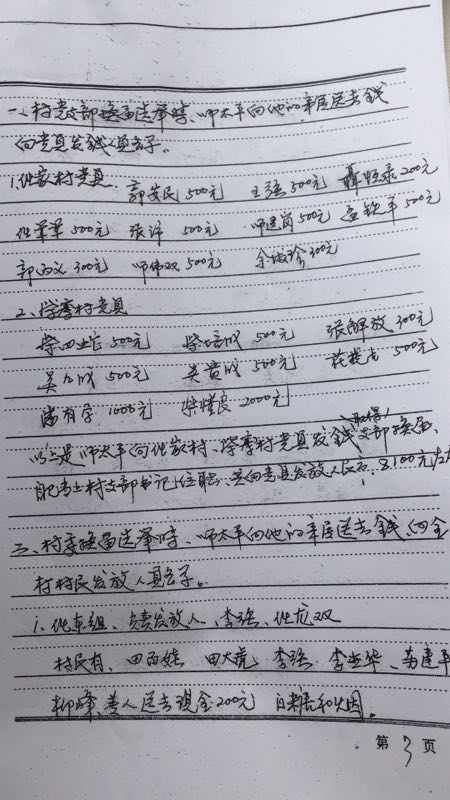 一、村党支部换届选举时、师太平向他的亲居送去钱
向党员发钱人員名子。
1.化家村党員、郭安民500元 王强500元 200元
化军军500元 张 500元 师建岗500元 500元
郭 义300元 师伟双500元 余淑珍300元
2、学摩村党員
柴四 500元 柴培成500元 张解放300元
吴九成500元 吴黄成500元 500元
有学1000元 柴 良2000元
取得
以上是师太平向化家村、学摩村党員发钱支部换届、
能当上村支部书记上位职、共向党員发放人民币8100元左右
三、村委换届选举时、师太平向他的亲居送去钱、向全
村村民发放人員名子。
1.化东组、负责发放人、李强、化龙双
村民有、田百娃 田大虎 李强 李 华、 建平
柳峰、差人送去现金200元 白 和烟。
第3页